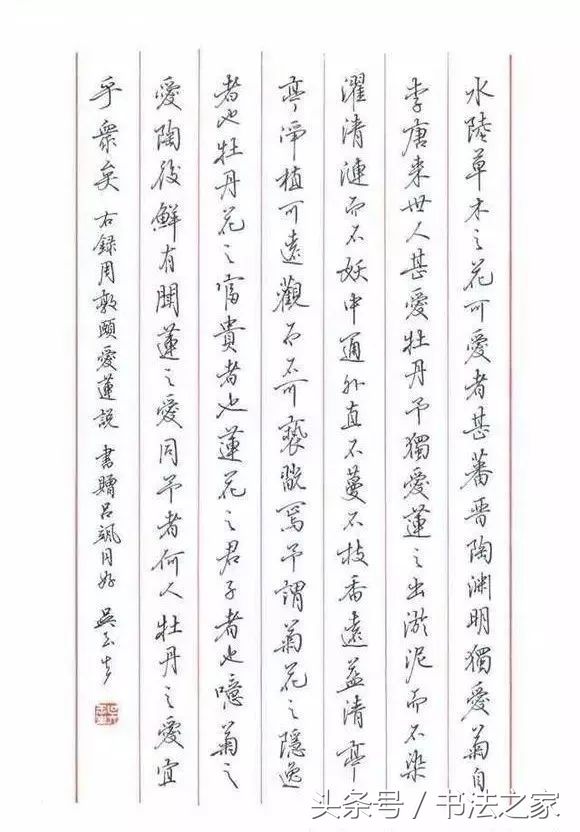 水陸草木之花可愛者甚蕃晉陶淵明獨愛菊自
李唐来世人甚愛牡丹予獨愛蓮之出淤泥而不染
濯清漣而不妖中通外直不蔓不枝香遠益清亭
亭淨植可遠觀而不可褻翫焉予謂菊花之隱逸
者也牡丹花之富貴者也蓮花之君子者也噫菊之
愛陶後鮮有聞蓮之愛同予者何人牡丹之愛宜
乎衆矣 右録周敦頤愛蓮説 書贈呂颯同好 吳玉生
头条号／书法之家